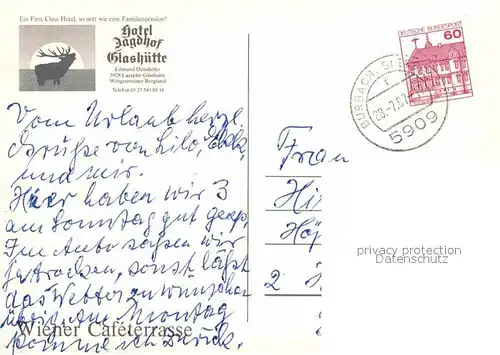 Ein First Class Hotel, so nett wie eine Familienpension!
Hotel
Jagdhof
Glashütte
Edmund Dornhöfer
5928 Laasphe-Glashütte
Wittgensteiner Bergland
Telefon (0 27 54) 88 14
DEUTSCHE BUNDESPOST
60
BURBACH, SIE
5909
Vom Urlaub herzl.
Grüße von Lilo,
und mir.
Hier haben wir 3
am Sonntag gut gesp.
Im Auto saßen wir
trocken, sonst läßt
das Wetter zu wünschen
übrig. Am Montag
komme ich zurück.
Wiener Caféterrasse
Frau
Hi
Hö
2
privacy protection
Datenschutz